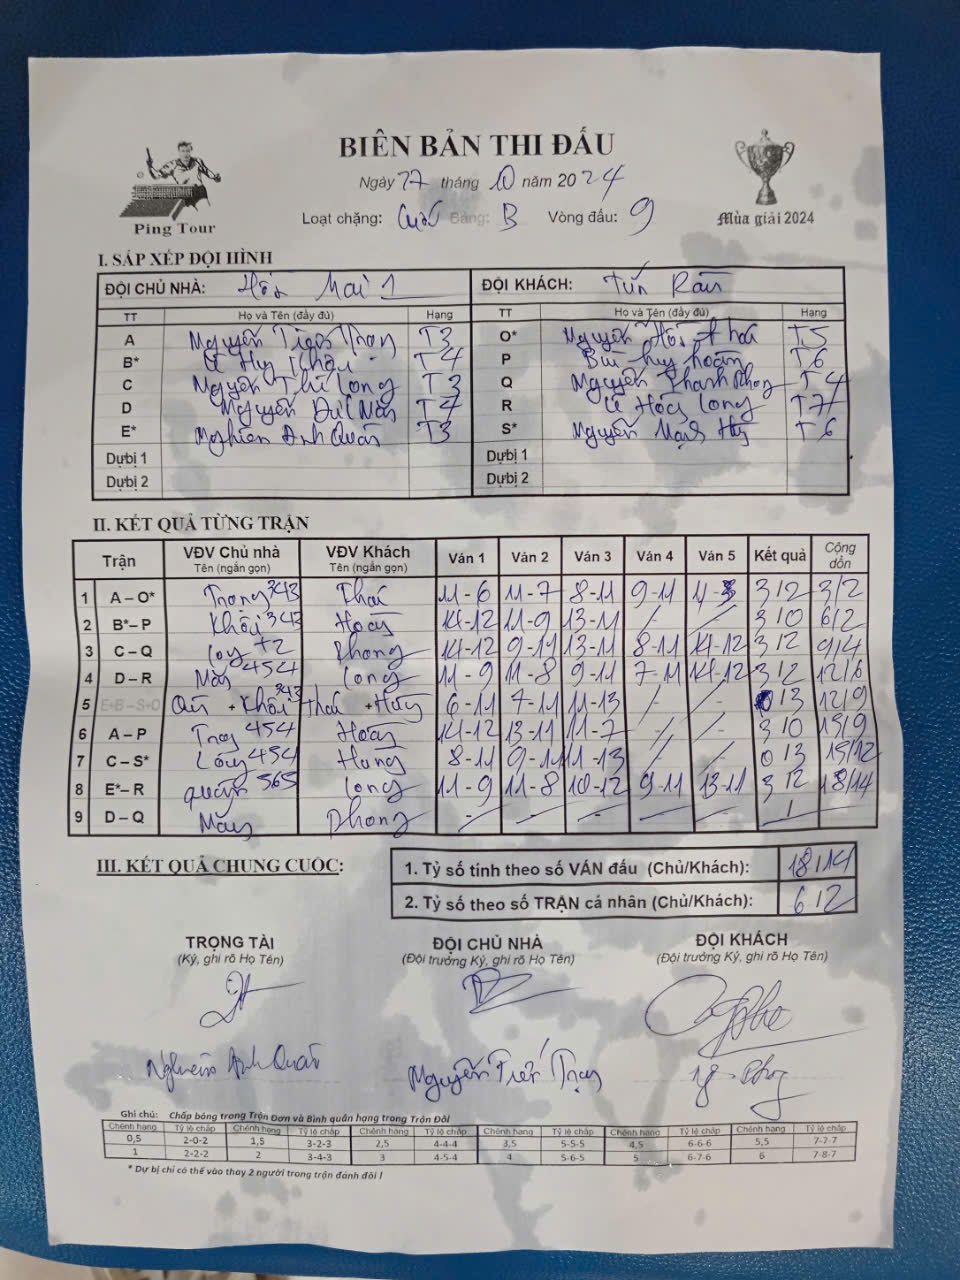 BIÊN BẢN THI ĐẤU
Ngày 27 tháng 10 năm 2024
Loạt chặng: Cuối Bảng: B Vòng đấu: 9
Ping Tour
Mùa giải 2024
I. SẮP XẾP ĐỘI HÌNH
ĐỘI CHỦ NHÀ: Mai 1 ĐỘI KHÁCH:
TT Họ và Tên (đầy đủ) Hạng TT Họ và Tên (đầy đủ) Hạng
A Nguyễn Trọng T3 O* Nguyễn T5
B* Lê Huy Khôi T4 P Bùi huy hoàng T6
C Nguyễn Long T3 Q Nguyễn Thanh Phong T4
D Nguyễn Đức T4 R Lê Long T7
E* Nghiêm Anh Quân T3 S* Nguyễn Mạnh T6
Dự bị 1 Dự bị 1
Dự bị 2 Dự bị 2
II. KẾT QUẢ TỪNG TRẬN
Trận VĐV Chủ nhà Tên (ngắn gọn) VĐV Khách Tên (ngắn gọn) Ván 1 Ván 2 Ván 3 Ván 4 Ván 5 Kết quả Cộng dồn
1 A – O* Trọng 343 Thái 11-6 11-7 8-11 9-11 3/2 3/2
2 B* – P Khôi 343 Hoàng 14-12 11-9 13-11 / / 3/0 6/2
3 C – Q Long +2 Phong 14-12 9-11 13-11 8-11 14-12 3/2 9/4
4 D – R 454 Long 11-9 11-8 9-11 7-11 14-12 3/2 12/6
5 E+B – S+O + Khôi 343 Thái + 6-11 7-11 11-13 / / 0/3 12/9
6 A – P Trọng 454 Hoàng 14-12 13-11 11-7 / / 3/0 15/9
7 C – S* Long 454 8-11 9-11 11-13 / / 0/3 15/12
8 E* – R Quân 565 Long 11-9 11-8 10-12 9-11 13-11 3/2 18/14
9 D – Q Phong - - - - - /
III. KẾT QUẢ CHUNG CUỘC:
1. Tỷ số tính theo số VÁN đấu (Chủ/Khách): 18/14
2. Tỷ số theo số TRẬN cá nhân (Chủ/Khách): 6/2
TRỌNG TÀI ĐỘI CHỦ NHÀ ĐỘI KHÁCH
(Ký, ghi rõ Họ Tên) (Đội trưởng Ký, ghi rõ Họ Tên) (Đội trưởng Ký, ghi rõ Họ Tên)
Nghiêm Anh Quân Nguyễn Trọng
Ghi chú: Chấp bóng trong Trận Đơn và Bình quân hạng trong Trận Đôi
Chênh hạng Tỷ lệ chấp Chênh hạng Tỷ lệ chấp Chênh hạng Tỷ lệ chấp Chênh hạng Tỷ lệ chấp Chênh hạng Tỷ lệ chấp Chênh hạng Tỷ lệ chấp
0,5 2-0-2 1,5 3-2-3 2,5 4-4-4 3,5 5-5-5 4,5 6-6-6 5,5 7-7-7
1 2-2-2 2 3-4-3 3 4-5-4 4 5-6-5 5 6-7-6 6 7-8-7
* Dự bị chỉ có thể vào thay 2 người trong trận đánh đôi !